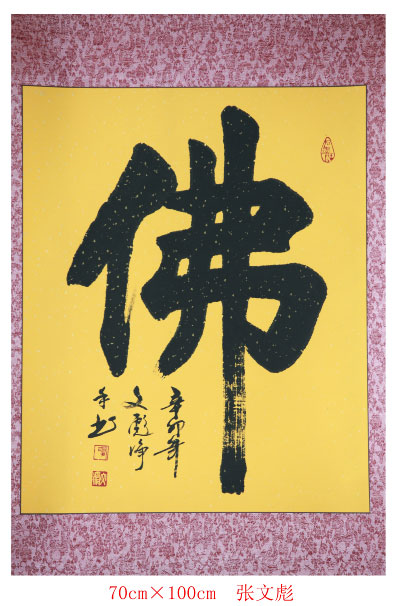 佛
辛卯年
文彪净
手书
70cm×100cm 张文彪